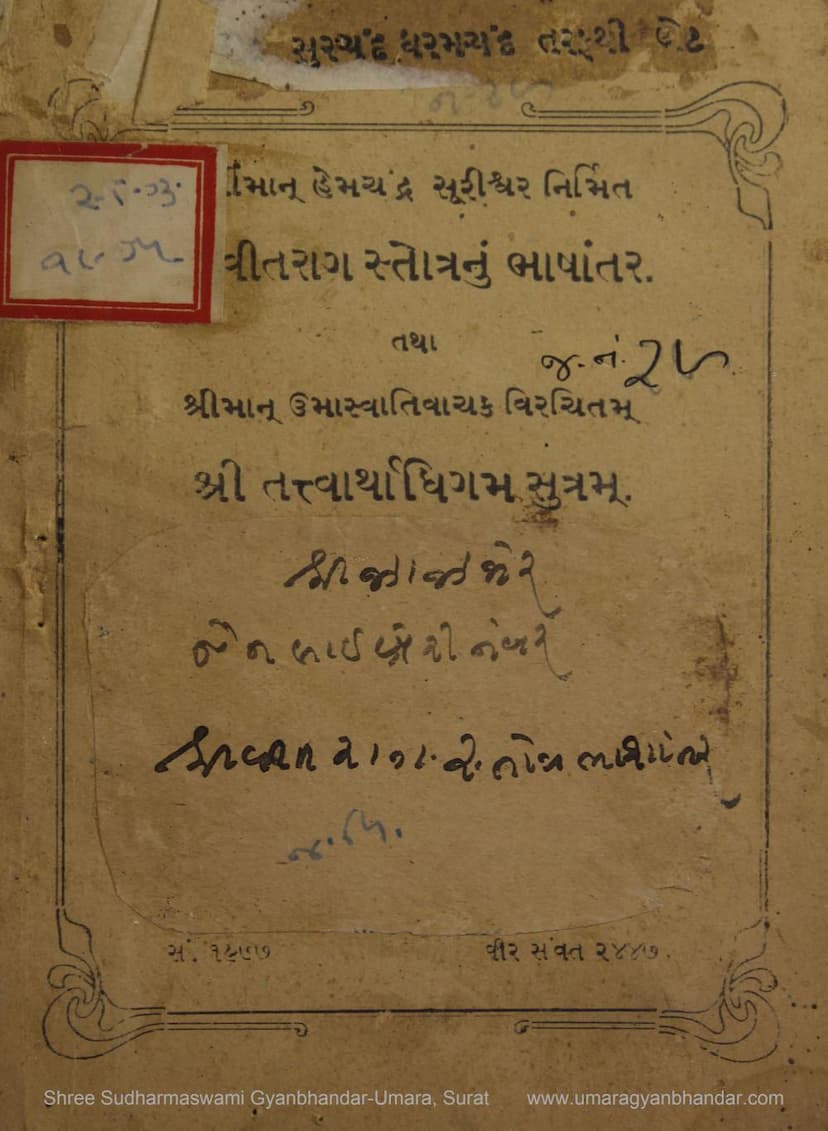 સુરચંદ ધરમચંદ તરફથી ભેટ
શ્રીમાન્ હેમચંદ્ર સૂરીશ્વર નિર્મિત
વીતરાગ સ્તોત્રનું ભાષાંતર.
તથા
જ. નં. ૨૫
શ્રીમાન્ ઉમાસ્વાતિવાચક વિરચિતમ્
શ્રી તત્ત્વાર્થાધિગમ સુત્રમ્.
જૈન લાઈબ્રેરી નંબર
શ્રી વીત રાગ સ્તોત્ર ભાશાંતર
સં. ૧૯૭૭
વીર સંવત ૨૪૪૭.
Shree Sudharmaswami Gyanbhandar-Umara, Surat
www.umaragyanbhandar.com